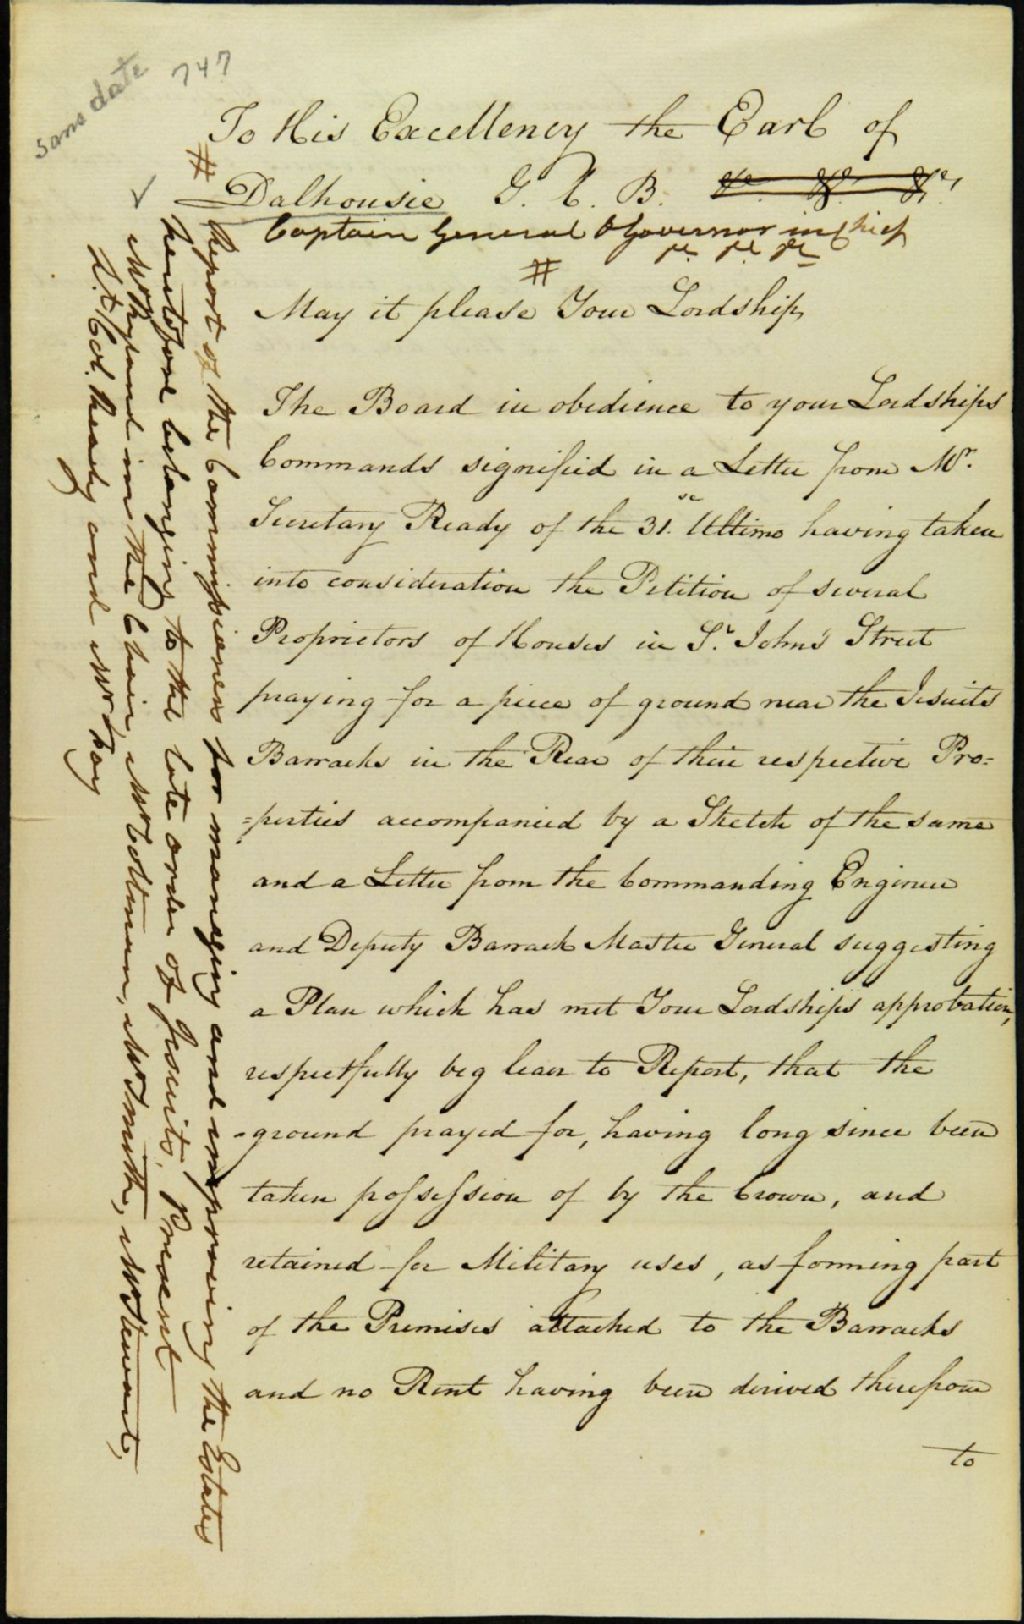 sans date
747
To His Excellency the Earl of
# Dalhousie G. C. B. &c. &c. &c.
Captain General & Governor in Chief
&c. &c. &c.
#
May it please Your Lordship,
The Board in obedience to your Lordships
Commands signified in a Letter from Mr.
Secretary Ready of the 31. Ultimo having taken
into consideration the Petition of several
Proprietors of Houses in St. John's Street
praying for a piece of ground near the Jesuits
Barracks in the Rear of their respective Pro=
=perties accompanied by a Sketch of the same
and a Letter from the Commanding Engineer
and Deputy Barrack Master General suggesting
a Plan which has met Your Lordships approbation,
respectfully beg leave to Report, that the
ground prayed for, having long since been
taken possession of by the Crown, and
retained for Military uses, as forming part
of the Premises attached to the Barracks
and no Rent having been derived therefrom
to
# Report of the Commissioners for managing and improving the Estates
heretofore belonging to the late order of Jesuits. Present
Mr Ryland in the Chair, Mr Coltman, Mr Smith, Mr Stewart,
Lt. Col. Ready and Mr Hay